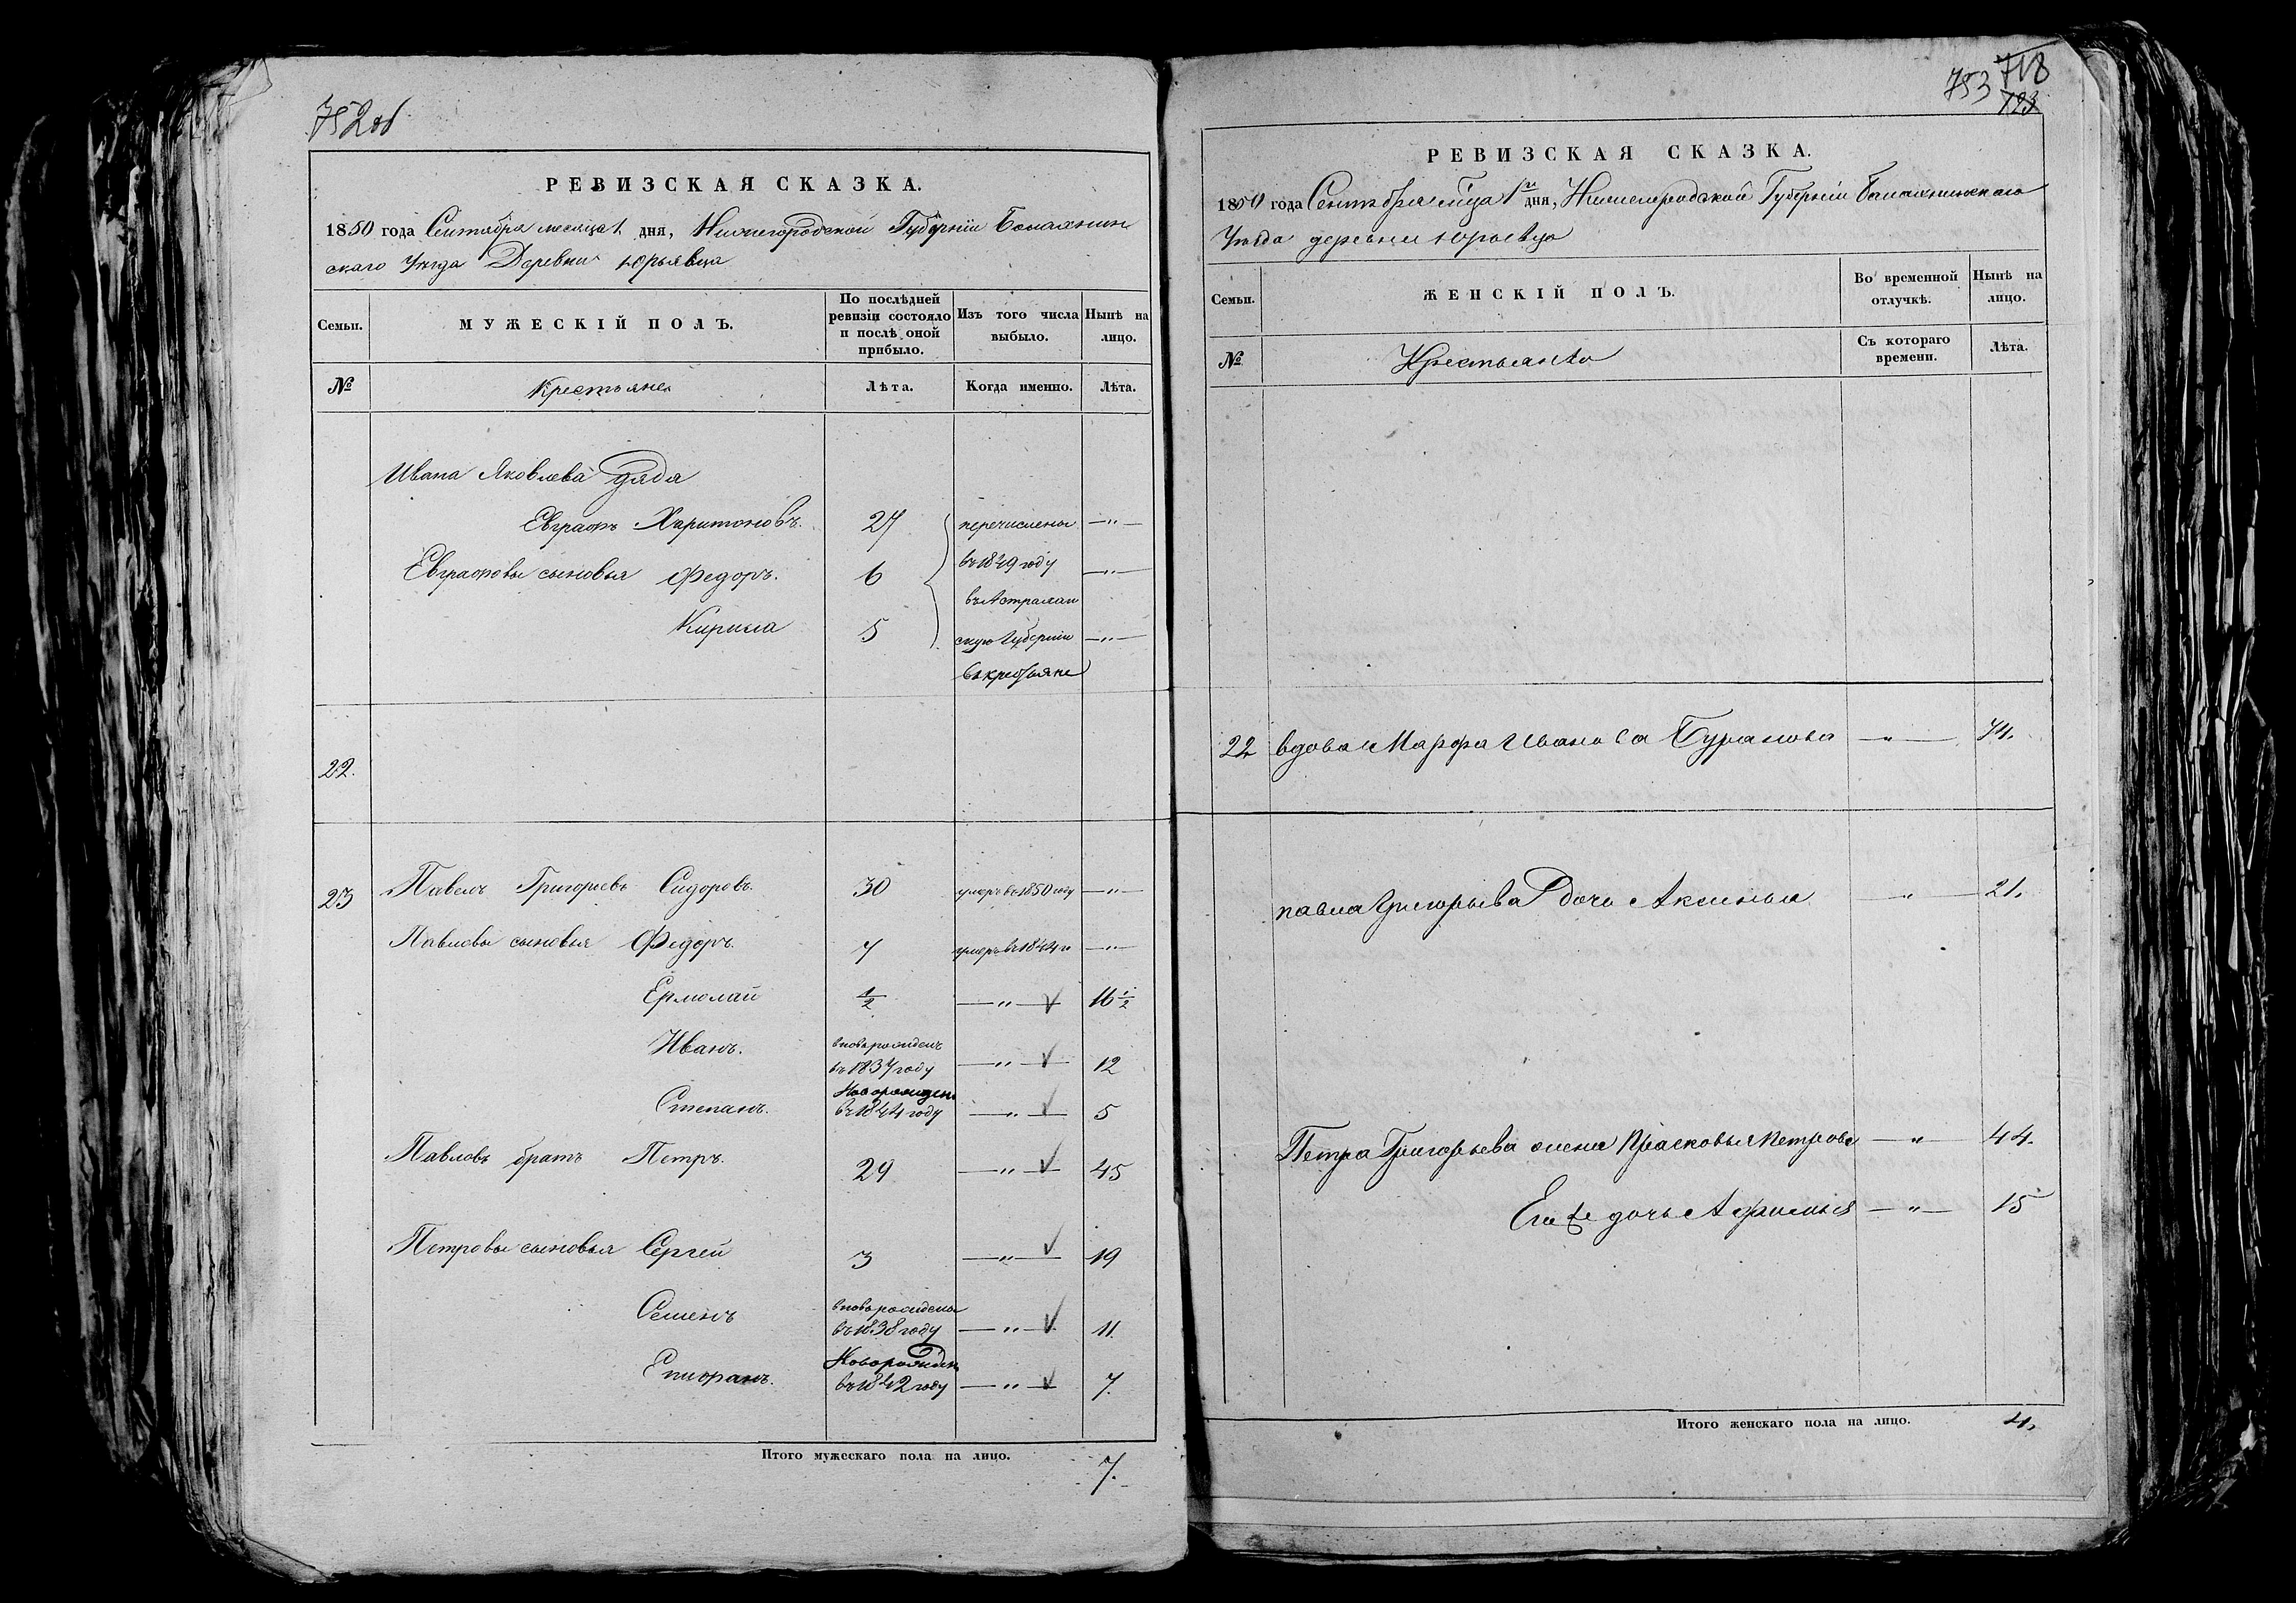 752об
РЕВИЗСКАЯ СКАЗКА.
1850 года Сентября месяца 1 дня, Нижегородской Губерніи Балахнин
скаго Уѣзда Деревни Юрьявца
Семьи. МУЖЕСКІЙ ПОЛЪ. По послѣдней ревизіи состояло и послѣ оной прибыло. Изъ того числа выбыло. Нынѣ на лицо.
№ Крестьяне Лѣта. Когда именно. Лѣта.
Ивана Яковлева дядя
Евграфъ Харитоновъ. 27 перечислены —"—
Евграфовы сыновья Федоръ. 6 въ 1849 году —"—
въ Астрахан
Кирила 5 скую Губернію —"—
въ крестьяне
22.
23 Павелъ Григорьевъ Сидоровъ. 30 умеръ въ 1850 году —"—
Павловы сыновья Федоръ. 7 умеръ въ 1844 г —"—
Ермолай 1/2 —"— √ 16 1/2
Иванъ. вновь рожденъ
въ 1837 году —"— √ 12
Степанъ. Новорожден.
въ 1844 году —"— √ 5
Павловъ братъ Петръ. 29 —"— √ 45
Петровы сыновья Сергей 3 —"— √ 19
Семенъ вновь рожденъ
въ 1838 году —"— √ 11.
Епифанъ. Новорожден
въ 1842 году —"— √ 7.
Итого мужескаго пола на лицо. 7.
753 718
723
РЕВИЗСКАЯ СКАЗКА.
1850 года Сентября мѣсяца 1 дня, Нижегородской Губерніи Балахнинскаго
Уѣзда деревни Юрьевца
Семьи. ЖЕНСКІЙ ПОЛЪ. Во временной отлучкѣ. Нынѣ на лицо.
№ Крестьянки Съ котораго времени. Лѣта.
22 вдова Марфа Иванова Буранова —"— 74.
павла Григорьева дочь Аксинья —"— 21.
Петра Григорьева жена Прасковья Петрова —"— 44.
Его же дочь Афимья —"— 15
Итого женскаго пола на лицо. 4.